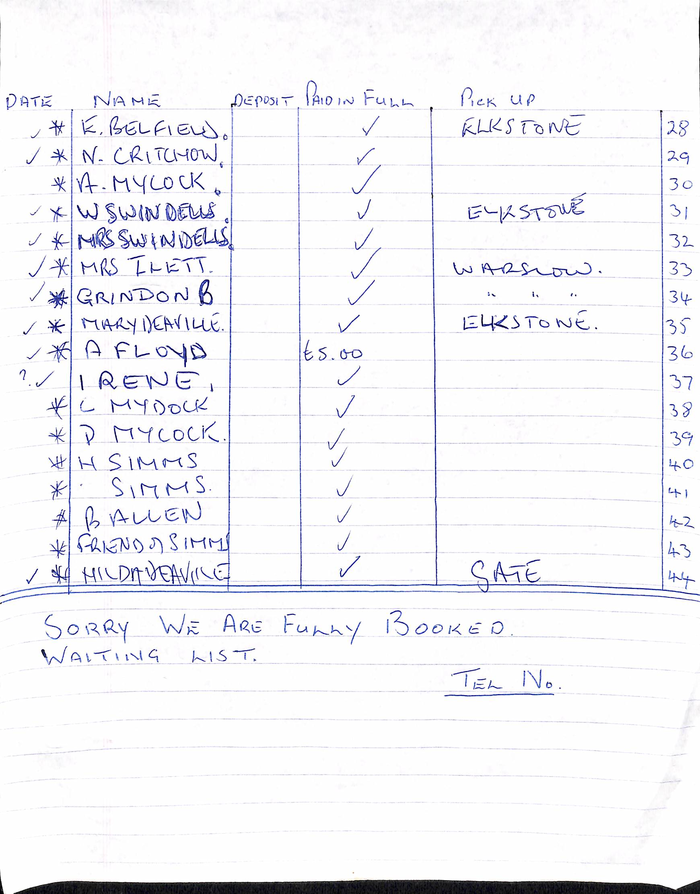 DATE NAME DEPOSIT PAID IN FULL PICK UP
✓ * E. BELFIELD. ✓ ELKSTONE 28
✓ * N. CRITCHLOW. ✓ 29
* A. MYCOCK. ✓ 30
✓ * W SWINDELLS. ✓ ELKSTONE 31
✓ * MRS SWINDELLS. ✓ 32
✓ * MRS ILETT. ✓ WARSLOW. 33
✓ * GRINDON B ✓ " " " 34
✓ * MARY DEAVILLE. ✓ ELKSTONE. 35
✓ * A FLOYD £5.00 36
? ✓ IRENE. ✓ 37
* C MYDOCK ✓ 38
* D MYCOCK. ✓ 39
* H SIMMS ✓ 40
* " SIMMS. ✓ 41
* B ALLEN ✓ 42
* FRIEND of SIMMS ✓ 43
✓ * HILDA DEAVILLE ✓ GATE 44
SORRY WE ARE FULLY BOOKED.
WAITING LIST.
TEL NO.